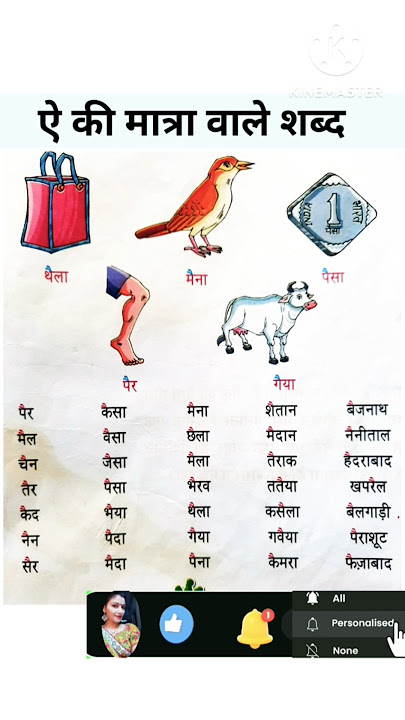 KINEMASTER
ऐ की मात्रा वाले शब्द
INDIA 1 पैसा भारत
थैला मैना पैसा
पैर गैया
पैर कैसा मैना शैतान बैजनाथ
मैल वैसा छैला मैदान नैनीताल
चैन जैसा मैला तैराक हैदराबाद
तैर पैसा भैरव ततैया खपरैल
कैद भैया थैला कसैला बैलगाड़ी
नैन पैदा गैया गवैया पैराशूट
सैर मैदा पैना कैमरा फैज़ाबाद
1
All
Personalised
None